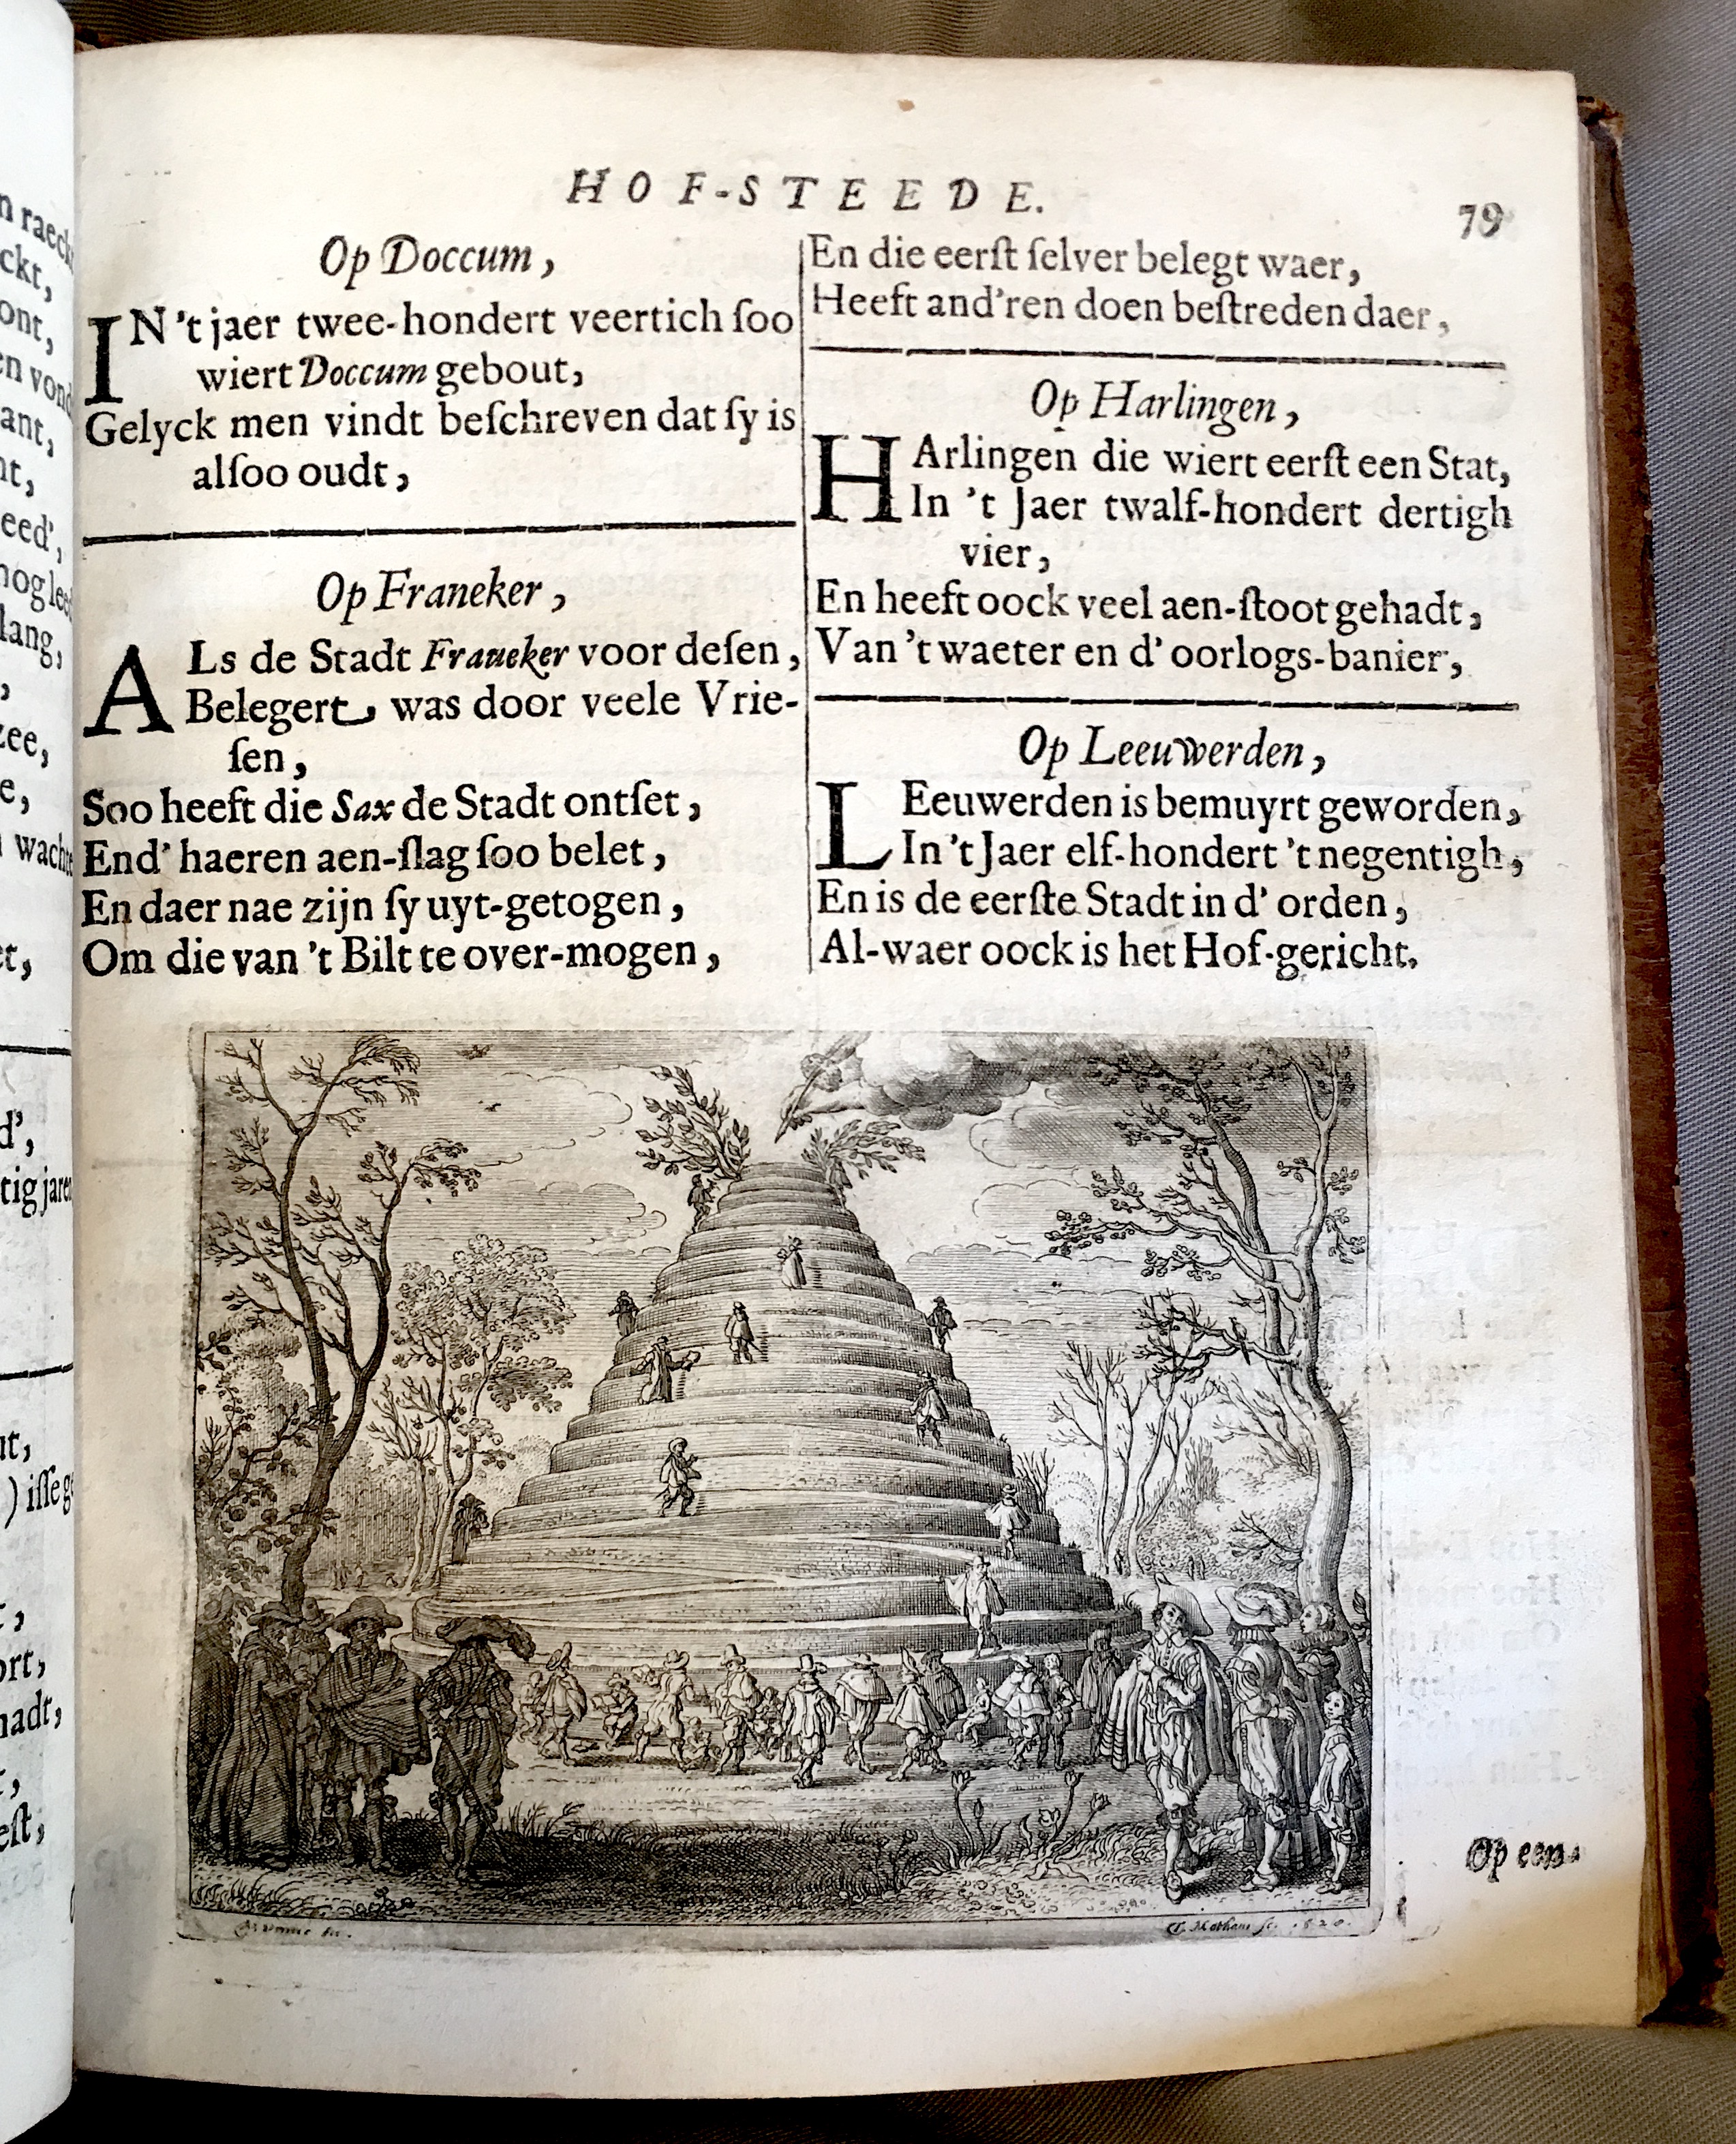 HOF-STEEDE.
79
Op Doccum,
IN 't jaer twee-hondert veertich ſoo
wiert Doccum gebout,
Gelyck men vindt beſchreven dat ſy is
alſoo oudt,
Op Franeker,
ALs de Stadt Fraueker voor deſen,
Belegert, was door veele Vrie-
ſen,
Soo heeft die Sax de Stadt ontſet,
End' haeren aen-ſlag ſoo belet,
En daer nae zijn ſy uyt-getogen,
Om die van 't Bilt te over-mogen,
En die eerſt ſelver belegt waer,
Heeft and'ren doen beſtreden daer,
Op Harlingen,
HArlingen die wiert eerſt een Stat,
In 't Jaer twalf-hondert dertigh
vier,
En heeft oock veel aen-ſtoot gehadt,
Van 't waeter en d' oorlogs-banier,
Op Leeuwerden,
LEeuwerden is bemuyrt geworden,
In 't Jaer elf-hondert 't negentigh,
En is de eerſte Stadt in d' orden,
Al-waer oock is het Hof-gericht.
Op een
n raeck
ckt,
ont,
en vond
ant,
nt,
eed',
lang,
zee,
e,
n wacht
et,
d',
tig jaren
ut,
) iſſe ge
ort,
hadt,
eſt,